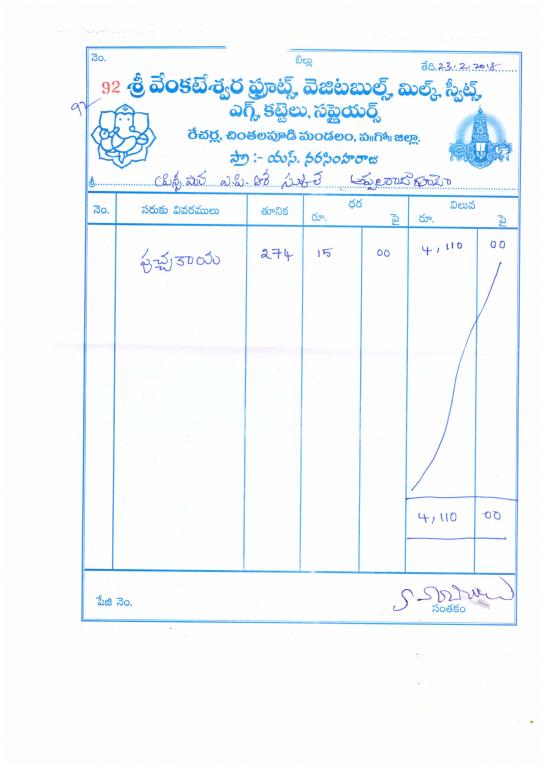 నెం. బిల్లు తేది. 23-2-2018
92 శ్రీ వేంకటేశ్వర ఫ్రూట్స్, వెజిటబుల్స్, మిల్క్, స్వీట్స్,
92
ఎగ్స్, కట్టెలు, సప్లైయర్స్
రేచర్ల, చింతలపూడి మండలం, ప॥గో॥ జిల్లా.
ప్రొ :- యస్. నరసింహరాజు
శ్రీ ప్రిన్సిపాల్ ఎ.పి.ఆర్
నెం. సరుకు వివరములు తూనిక ధర విలువ
రూ. పై రూ. పై
పుచ్చకాయ 274 15 00 4,110 00
4,110 00
పేజి నెం. సంతకం